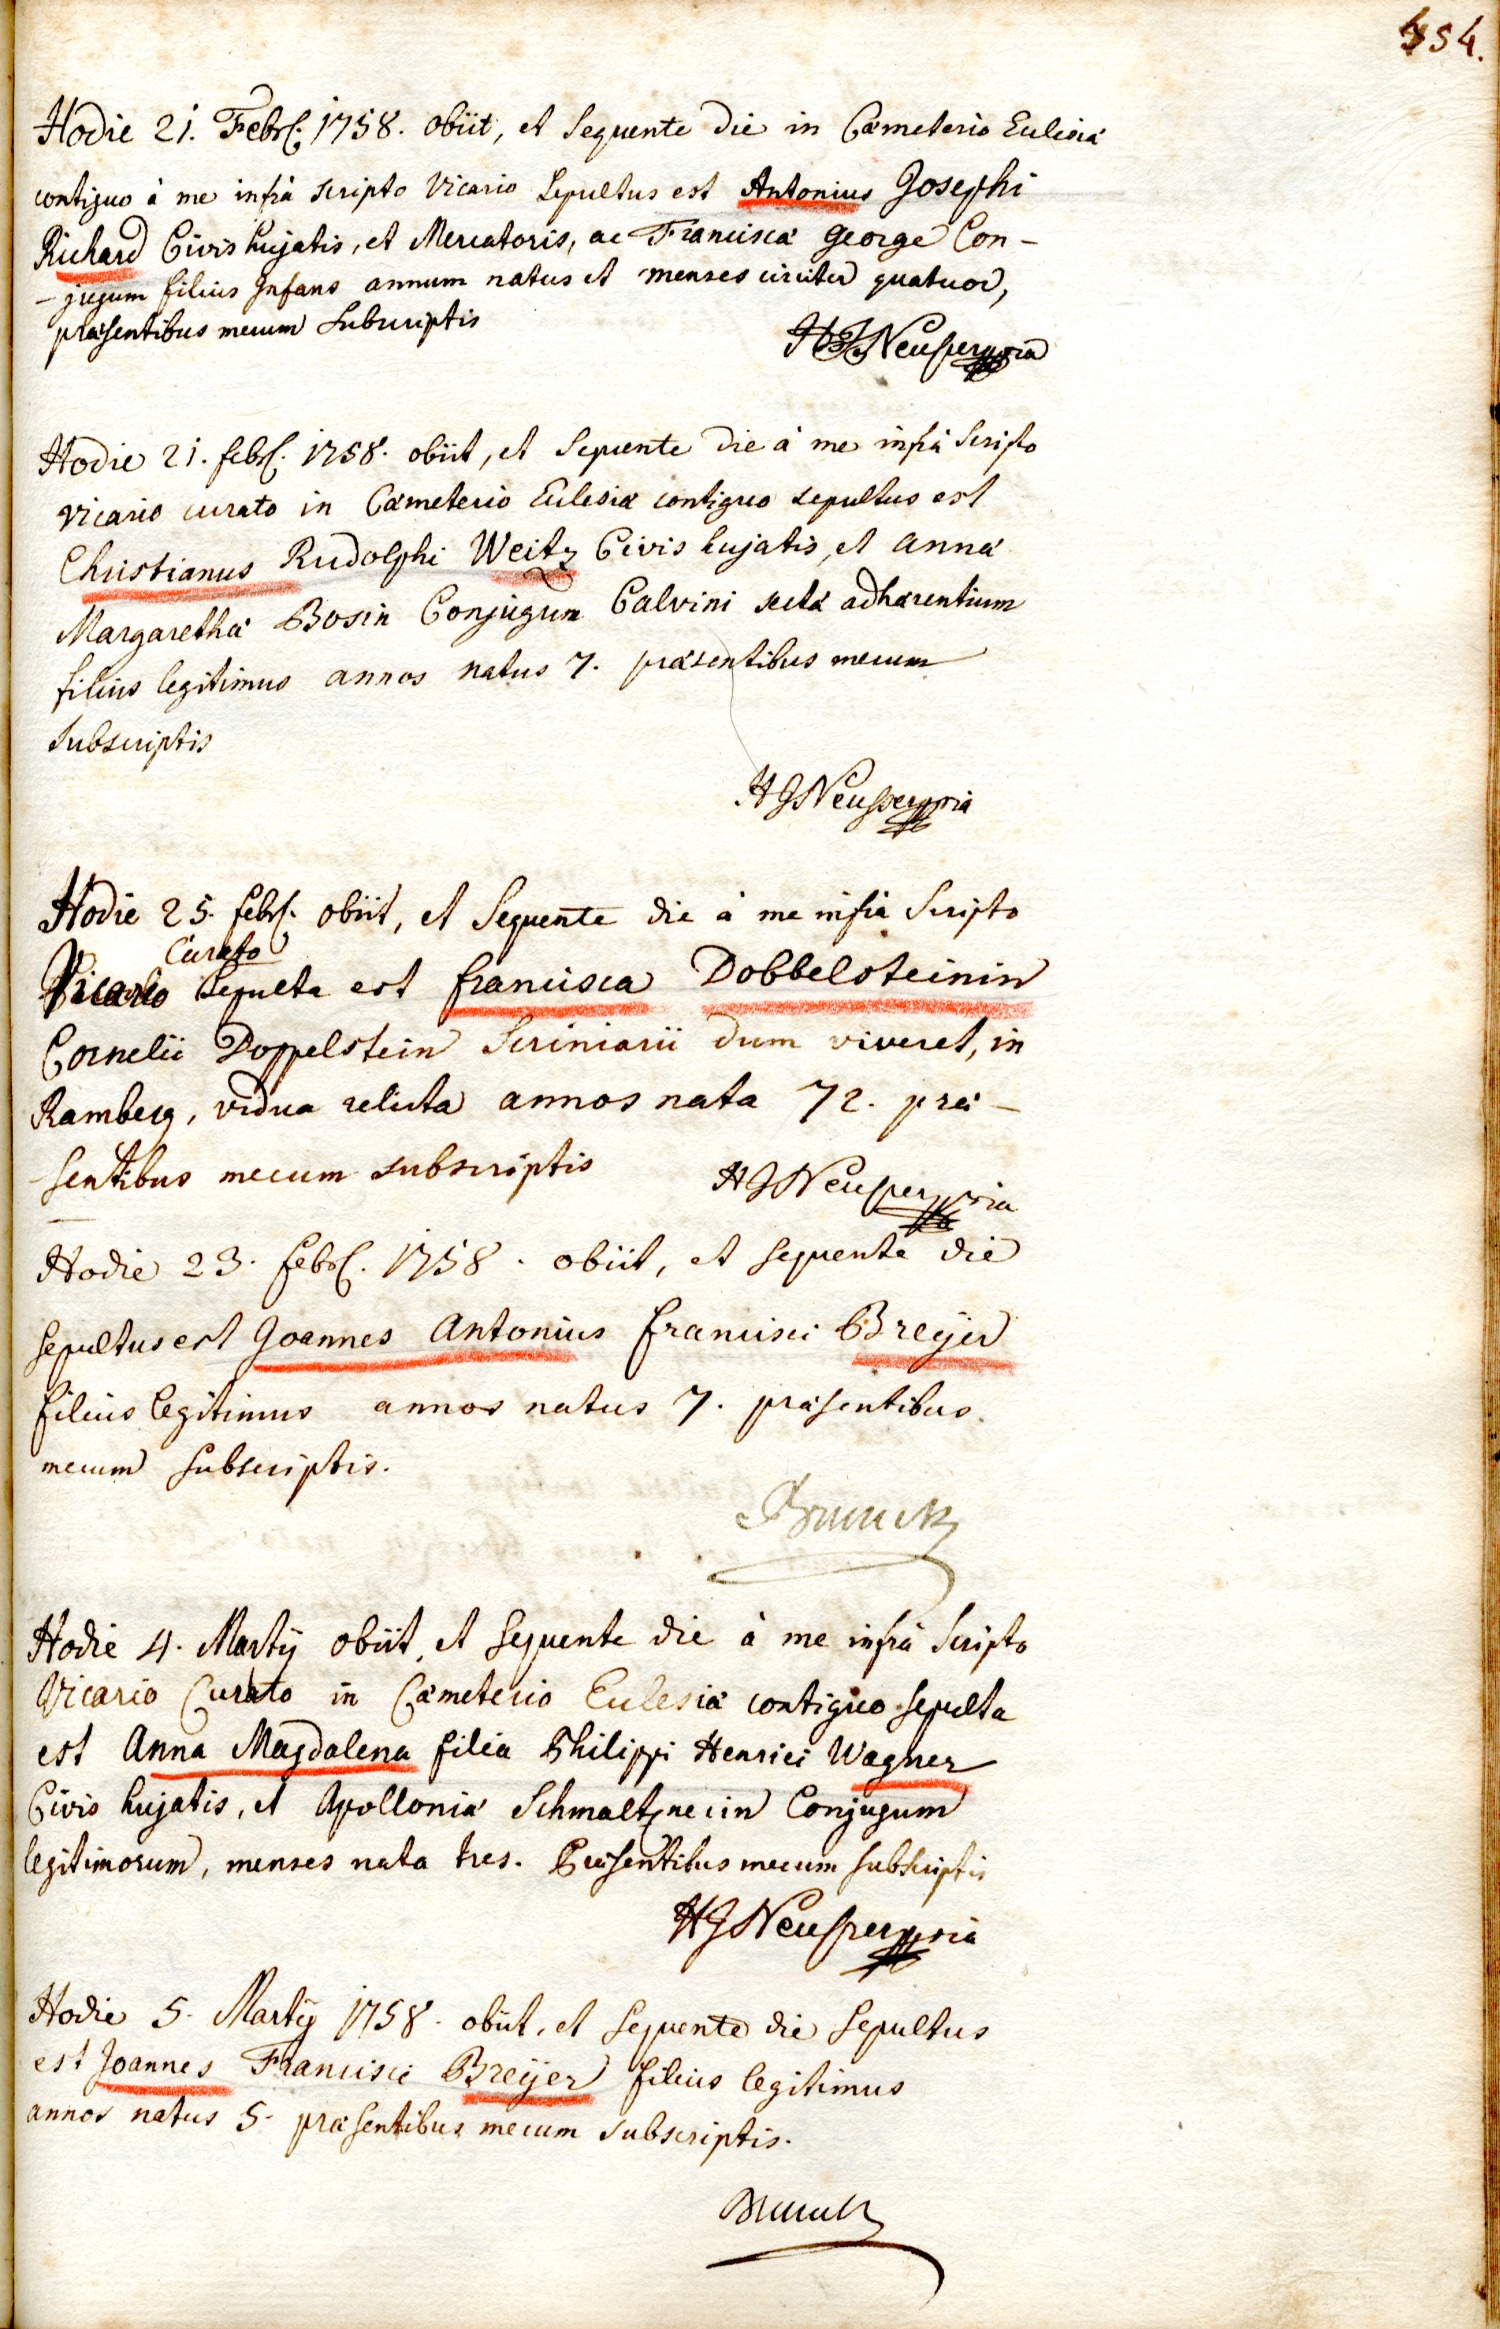 454.
Hodie 21. Febr. 1758. obiit, et Sequente die in Cœmeterio Ecclesiæ
contiguo à me infrà scripto Vicario Sepultus est Antonius Josephi
Richard Civis hujatis, et Mercatoris, ac Franciscæ George Con-
-jugum filius Infans annum natus et menses circiter quatuor,
præsentibus mecum Subscriptis
HJNeusperg
Hodie 21. febr. 1758. obiit, et Sequente die à me infrà Scripto
vicario curato in Cœmeterio Ecclesiæ contiguo sepultus est
Christianus Rudolphi Weitz Civis hujatis, et Annæ
Margarethæ Bosin Conjugum Calvini sectæ adhærentium
filius legitimus annos natus 7. præsentibus mecum
Subscriptis
HJNeusperg
Hodie 25. febr. obiit, et Sequente die à me infrà Scripto
Curato
Vicario Sepulta est francisca Dobbelsteinin
Cornelii Doppelstein Scriniarii dum viveret, in
Ramberg, vidua relicta annos nata 72. præ-
sentibus mecum subscriptis
HJNeusperg
Hodie 23. febr. 1758. obiit, et sequente die
sepultus est Joannes Antonius francisci Breÿer
filius legitimus annos natus 7. præsentibus
mecum subscriptis.
Hodie 4. Martÿ obiit, et sequente die à me infrà Scripto
Vicario Curato in Cæmeterio Ecclesiæ contiguo sepulta
est Anna Magdalena filia Philippi Henrici Wagner
Civis hujatis, et Apolloniæ Schmaltznecin Conjugum
legitimorum, menses nata tres. Præsentibus mecum subscriptis
HJNeusperg
Hodie 5. Martÿ 1758. obiit, et sequente die sepultus
est Joannes Francisci Breÿer filius legitimus
annos natus 5. præsentibus mecum subscriptis.